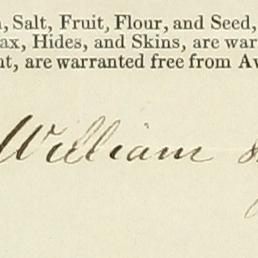 , Salt, Fruit, Flour, and Seed,
ax, Hides, and Skins, are war
nt, are warranted free from Av
William